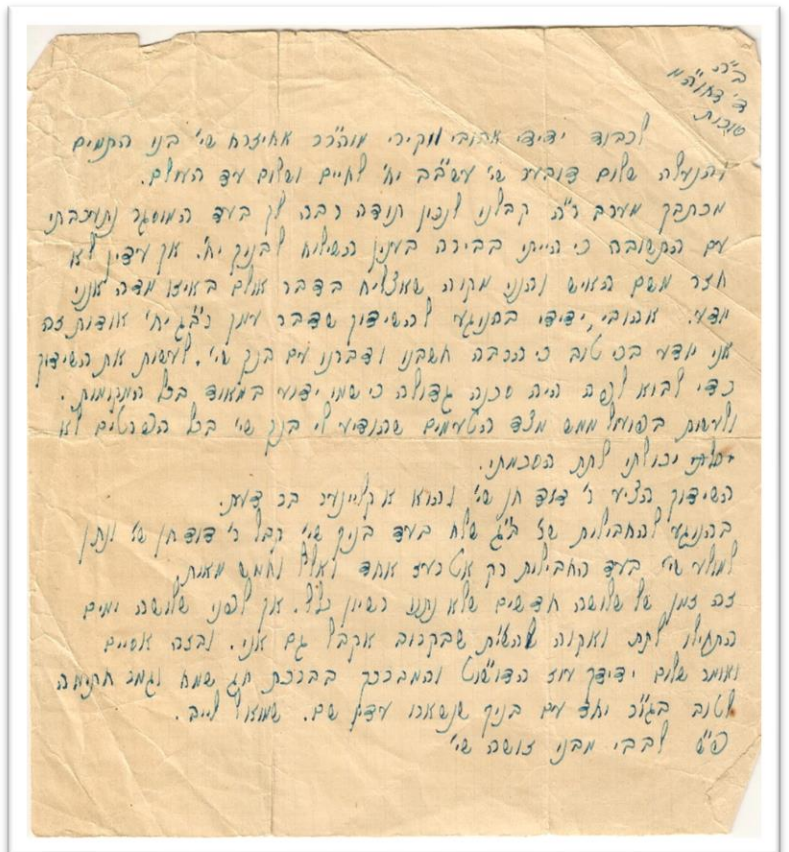 ב"ה
ד' דחוה"מ
סוכות
לכבוד ידידי אהובי ויקירי מוה"ר אחיעזר שי' בנו התמים
והנעלה שלום דובער שי' עש"ב יחי' לחיים ושלום עד העולם.
מכתבך מערב ר"ה קבלנו לנכון תודה רבה לך בעד המוסגר נתעכבתי
עם התשובה כי הייתי בבירה בענין השילוח לבניך יחי'. אך עדיין לא
חזר משם האיש והנני מקוה שאצליח בדבר אולם באיזו מדה אינני
יודע. אהובי, ידידי בהנוגע להשידוך שדבר עמך רב"ג יחי' אודות זה
אני יודע בכי טוב כי הרבה חשבנו ודברנו עם בנך שי'. לעשות את השידוך
כדי לבוא לפה היה סכנה גדולה כי שמו ידוע במאוד בכל המקומות.
ולעשות בפועל ממש מצד הטעמים שהודיע לי בנך שי' בכל הפרטים לא
יכולתי לתת הסכמתי.
השידוך הציע ר' דוד חן שי' והוא א קליינער בר דעת.
בהנוגע להחבילות שר' ב"ג שלח בעד בניך שי' קבל ר' דוד חן שי' ונתן
למולע שי' בעד החבילות רק אטרעז אחד ואלף וחמש מאות.
זה זמן של שלושה חדשים שלא נתנו רשיון כלל. אך לפני שלושה ימים
התחילו לתת ואקוה להשי"ת שבקרוב אקבל גם אני. ובזה אסיים
ואומר שלום ידידך עוז הדוש"ט והמברכך בברכת חג שמח וגמר חתימה
לטוב בגו"ר יחד עם בניך שנשארו עדיין שם. שמואל לייב.
פ"ש לבבי מבני זושה שי'